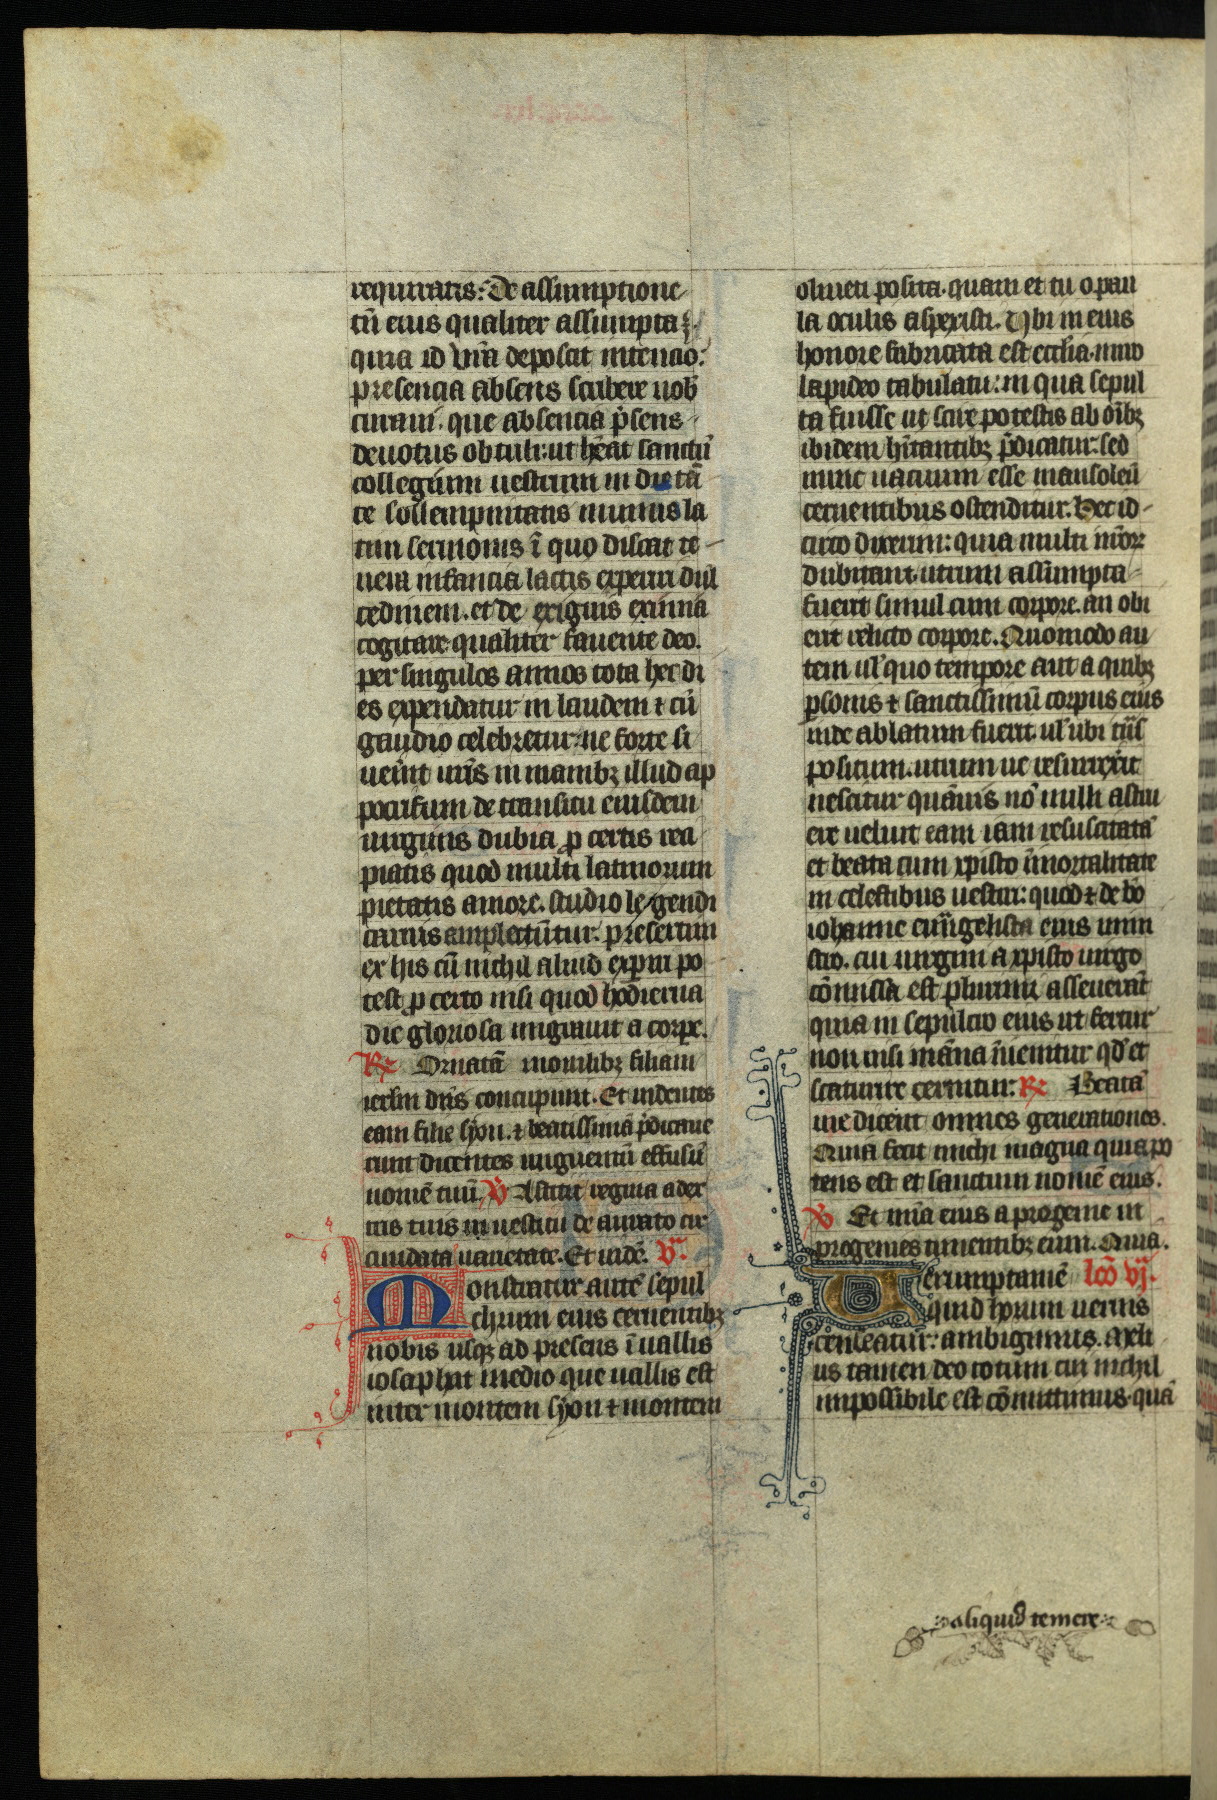 requiratis: De assumptione
tū eius qualiter assumpta ē.
quia id vr̄a deposcit intencio:
presencia absens scribere uob
curaui. que absencia p̄sens
deuotus obtuli: ut hēat sanctū
collegium uestrum in die tā
te sollempnitatis munus la
tini sermonis ī quo discat te
nera infancia lactis experiri dul
cedinem. et de exiguis eximia
cogitare qualiter fauente deo.
per singulos annos tota hec di
es expendatur in laudem ⁊ cū
gaudio celebretur: ne forte si
uen̄it ur̄is in manibꝫ illud ap
pocrifum de transitu eiusdem
uirginis dubia ꝓ certis reci
piatis quod multi latinorum
pietatis amore. studio legendi
carius amplectūtur: presertim
ex his cū nichil aliud exp̄iri po
test ꝓ certo nisi quod hodierna
die gloriosa migrauit a corpe.
R̸ Ornatā monilibꝫ filiam
ierl̄m dn̄s concupiuit. Et uidentes
eam filie syon. ⁊ beatissimā p̄dicaue
runt dicentes unguentū effusū
nomē tuū. V̸ Astitit regina a dex
tris tuis in uestitu de aurato cir
cumdata uarietate. Et uidē. Vr̄.
Monstratur autē sepul
chrum eius cernentibꝫ
nobis usqꝫ ad presens ī uallis
iosaphat medio que uallis est
inter montem syon ⁊ montem
oliueti posita. quam et tu o pau
la oculis aspexisti. Vbi in eius
honore fabricata est ecclīa. miro
lapideo tabulatu: in qua sepul
ta fuisse ut scire potestis ab oībꝫ
ibidem hītantibꝫ p̄dicatur: sed
nunc uacuum esse mausoleū
cernentibus ostenditur. Hec id
circo dixerim: quia multi nr̄oꝝ
dubitant. utrum assumpta
fuerit simul cum corpore. an obi
erit relicto corpore. Quomodo au
tem ul̄ quo tempore aut a quibꝫ
ꝑsonis ⁊ sanctissimū corpus eius
inde ablatum fuerit. ul̄ ubi tn̄s
positum. utrum ue resurrexit
nescitur quāuis nō nulli astru
ere uelint eam iam resuscitatā
et beata cum xpisto īmortalitate
in celestibus uestiri: quod ⁊ de bo
iohanne euu̅gelista eius mini
stro. cui uirgini a xpisto uirgo
cōmissa est plurimi asseuerāt
quia in sepulcro eius ut fertur
non nisi māna īuenitur qd̄ et
scaturire cernitur: R̸ Beatā
me dicent omnes generationes.
Quia fecit michi magna qui po
tens est et sanctum nomē eius.
V̸ Et mīa eius a progenie in
progenies timentibꝫ eum. Quia.
Verumptamē lcō vij.
quid horum uerius
cēnseatur: ambigimus. Meli
us tamen deo totum cui nichil
impossibile est cōmittimus. quā
aliquid temere